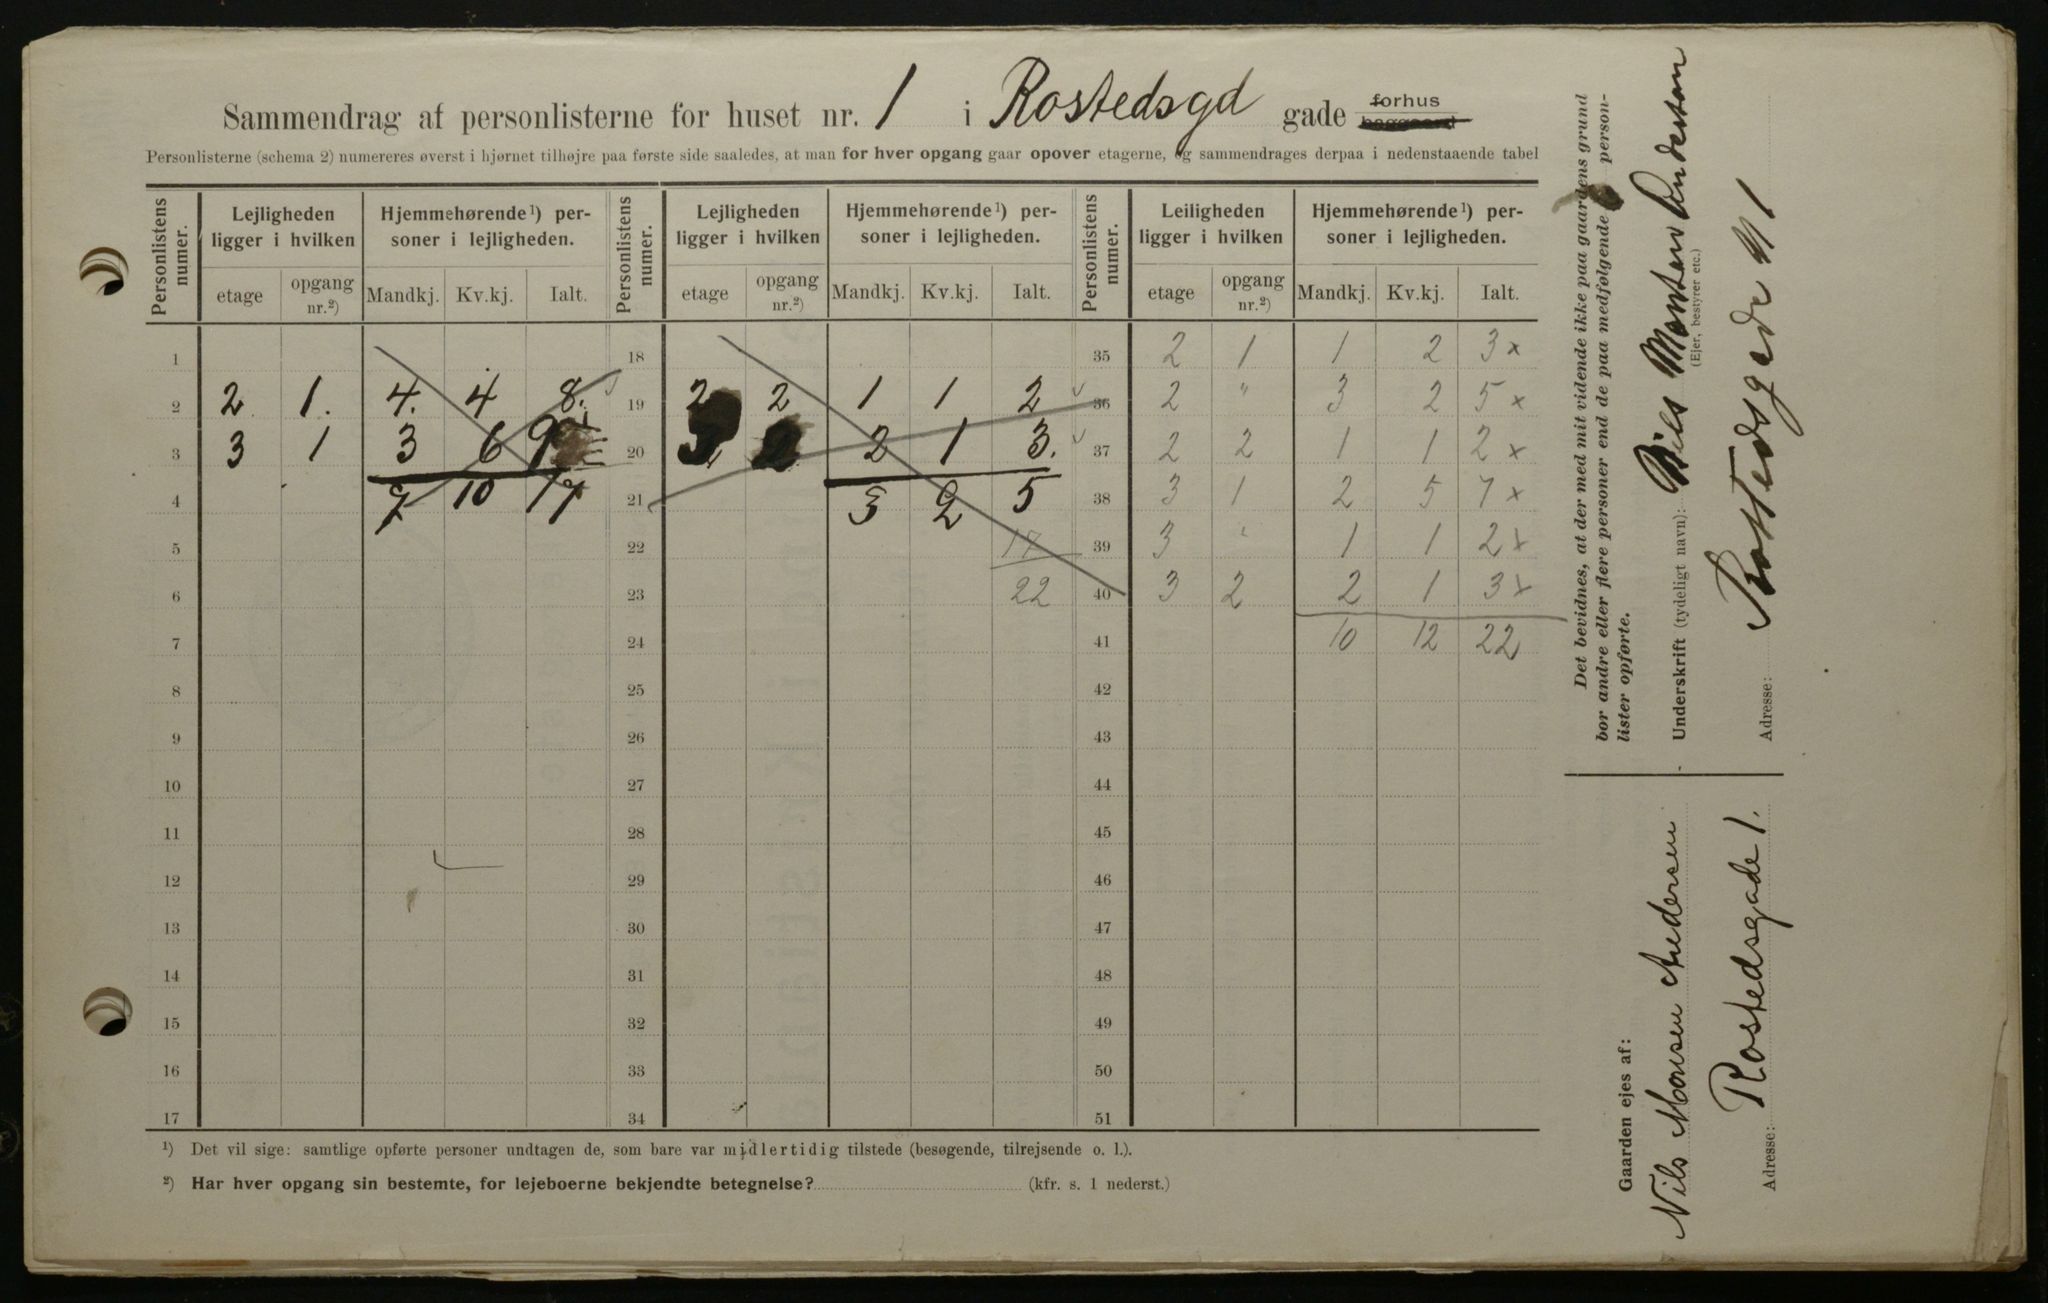 Sammendrag af personlisterne for huset nr. 1 i Rostedsgd gade forhus baggaard
Personlisterne (schema 2) numereres øverst i hjørnet tilhøjre paa første side saaledes, at man for hver opgang gaar opover etagerne, og sammendrages derpaa i nedenstaaende tabel
Personlistens numer. Lejligheden ligger i hvilken Hjemmehørende¹) personer i lejligheden. Personlistens numer. Lejligheden ligger i hvilken Hjemmehørende¹) personer i lejligheden. Personlistens numer. Leiligheden ligger i hvilken Hjemmehørende¹) personer i lejligheden.
etage opgang nr.²) Mandkj. Kv.kj. Ialt. etage opgang nr.²) Mandkj. Kv.kj. Ialt. etage opgang nr.²) Mandkj. Kv.kj. Ialt.
1 18 35 2 1 1 2 3 x
2 2. 1. 4. 4 8. 19 2 2 1 1 2 36 2 " 3 2 5 x
3 3 1 3 6 9 20 3 2 2 1 3. 37 2 2 1 1 2 x
4 7 10 17 21 3 2 5 38 3 1 2 5 7 x
5 22 17 39 3 " 1 1 2 x
6 23 22 40 3 2 2 1 3 x
7 24 41 10 12 22
8 25 42
9 26 43
10 27 44
11 28 45
12 29 46
13 30 47
14 31 48
15 32 49
16 33 50
17 34 51
¹) Det vil sige: samtlige opførte personer undtagen de, som bare var midlertidig tilstede (besøgende, tilrejsende o. l.).
²) Har hver opgang sin bestemte, for lejeboerne bekjendte betegnelse? (kfr. s. 1 nederst.)
Det bevidnes, at der med mit vidende ikke paa gaardens grund
bor andre eller flere personer end de paa medfølgende person-
lister opførte.
Underskrift (tydeligt navn): Nils Monsen Andersen
(Ejer, bestyrer etc.)
Adresse: Rostedsgade N 1
Gaarden ejes af:
Nils Monsen Andersen
Adresse: Rostedsgade 1.